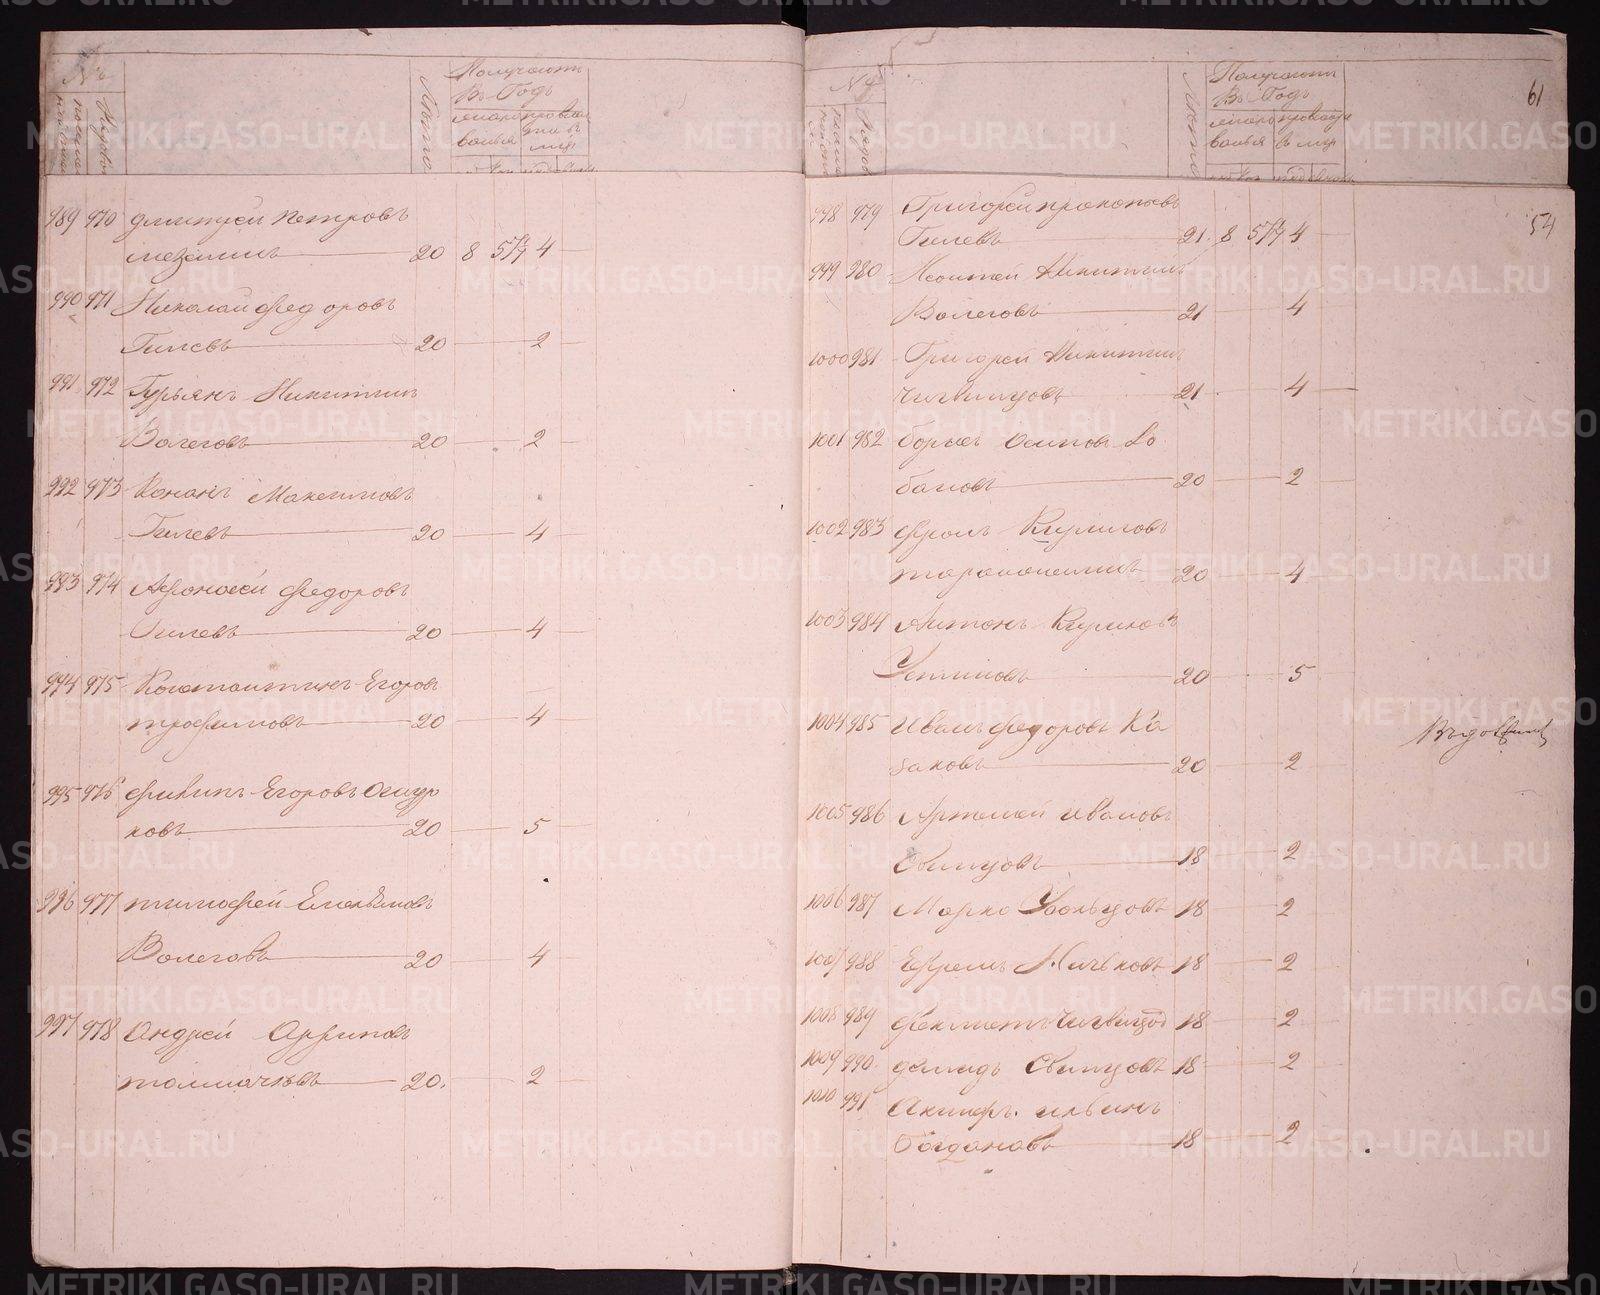 №
Лета
Получаютъ
Въ Годъ
989 970 Дмитрей Петровъ
20 8 57 1/7 4
990 971 Николай Федоровъ
Гилевъ 20 2
991 972 Гурьянъ Никитинъ
Волеговъ 20 2
992 973 Кононъ Максимовъ
Гилевъ 20 4
993 974 Афонасей Федоровъ
Гилевъ 20 4
994 975 Константинъ Егоровъ
трофимовъ 20 4
995 976 Филипъ Егоровъ Огнур
ковъ 20 5
996 977 тимофей Емельяновъ
Волеговъ 20 4
997 978 Андрей Архиповъ
толмачевъ 20. 2
№
Лета
Получаютъ
Въ Годъ
61
54
998 979 Григорей прокопьевъ
Гилевъ 21. 8 57 1/7 4
999 980 Никитинъ
Волеговъ 21 4
1000 981 Григорей Никитинъ
Чигвинцовъ 21 4
1001 982 борисъ Осиповъ Ло
бановъ 20 2
1002 983 Фролъ Кириловъ
20 4
1003 984 Антонъ Кириловъ
Устиновъ 20 5
1004 985 Иванъ Федоровъ Ка
заковъ 20 2
1005 986 Артемей Ивановъ
Свинцовъ 18 2
1006 987 Марко Удонцовъ 18 2
1007 988 Ефремъ 18 2
1008 989 Феклистъ Чигвинцов 18 2
1009 990 демидъ Свинцовъ 18 2
1010 991 Акинфъ ильинъ
Богдановъ 18 2
METRIKI.GASO-URAL.RU